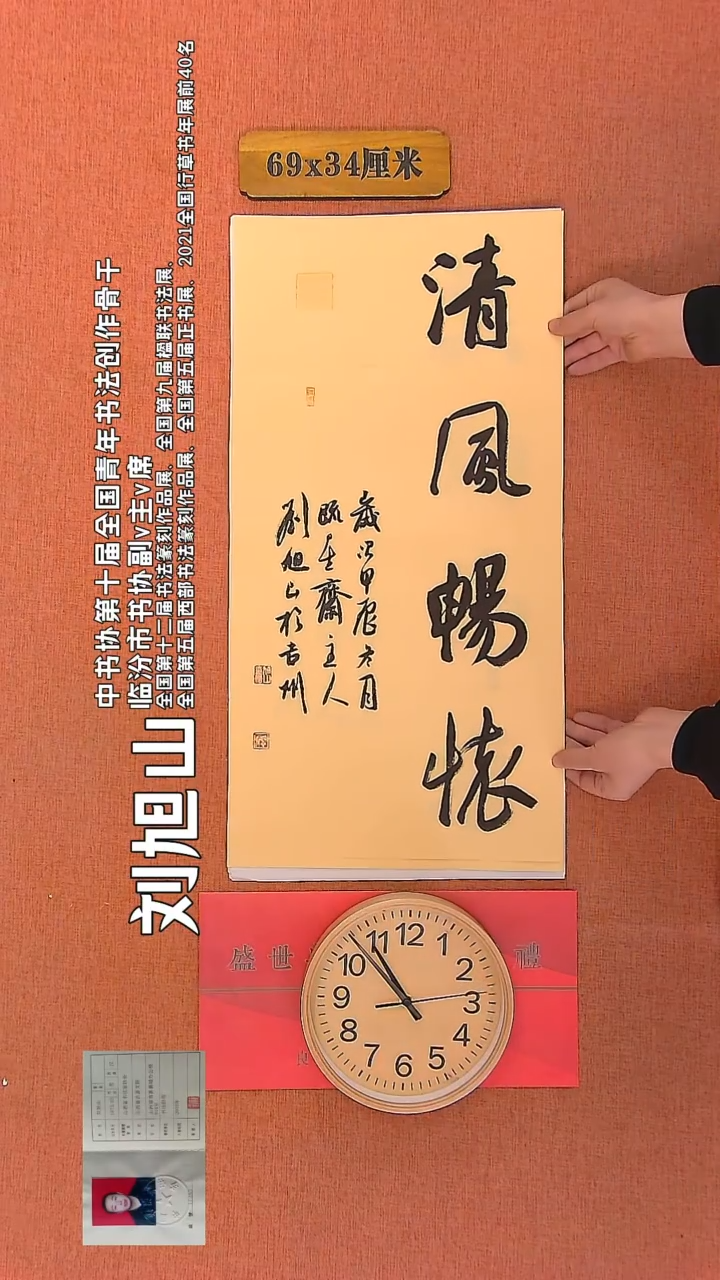 69x34厘米
清風暢懷
歲次甲辰冬月
齋主人
劉旭山於吉州
中书协第十届全国青年书法创作骨干
临汾市书协副v主v席
全国第十二届书法篆刻作品展、全国第九届楹联书法展、
全国第五届西部书法篆刻作品展、全国第五届正书展、2021全国行草书年展前40名
刘旭山
盛世
禮
12
1
2
3
4
5
6
7
8
9
10
11